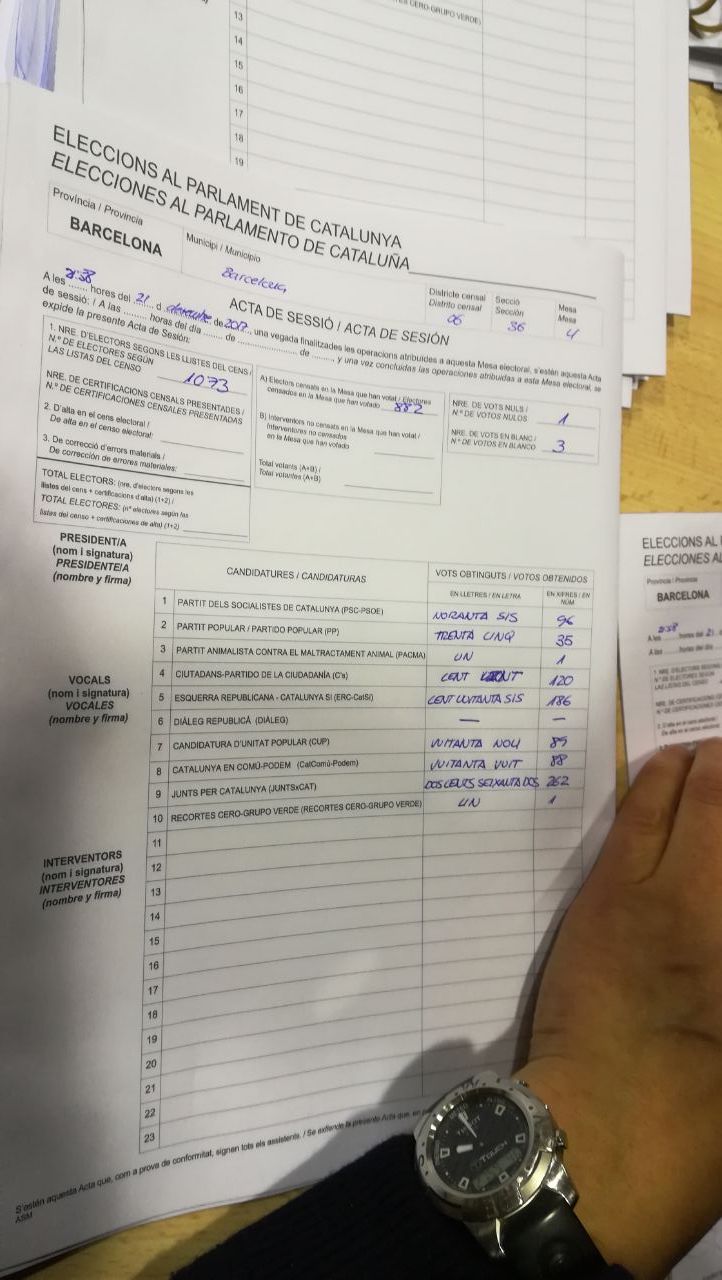 CERO-GRUPO VERDE)
13
14
15
16
17
18
19
ELECCIONS AL PARLAMENT DE CATALUNYA
ELECCIONES AL PARLAMENTO DE CATALUÑA
Província / Provincia
BARCELONA
Municipi / Municipio
Barcelona
Districte censal
Distrito censal
06
Secció
Sección
36
Mesa
Mesa
4
ACTA DE SESSIÓ / ACTA DE SESIÓN
A les 21:38 hores del 21 d desembre de 2017, una vegada finalitzades les operacions atribuïdes a aquesta Mesa electoral, s'estén aquesta Acta
de sessió: / A las ........ horas del día ....... de ................ de ......., y una vez concluidas las operaciones atribuidas a esta Mesa electoral, se
expide la presente Acta de Sesión:
1. NRE. D'ELECTORS SEGONS LES LLISTES DEL CENS /
N.º DE ELECTORES SEGÚN
LAS LISTAS DEL CENSO
1073
NRE. DE CERTIFICACIONS CENSALS PRESENTADES /
N.º DE CERTIFICACIONES CENSALES PRESENTADAS
2. D'alta en el cens electoral /
De alta en el censo electoral:
3. De correcció d'errors materials /
De corrección de errores materiales:
TOTAL ELECTORS: (nre. d'electors segons les
llistes del cens + certificacions d'alta) (1+2) /
TOTAL ELECTORES: (nº electores según las
listas del censo + certificaciones de alta) (1+2)
A) Electors censats en la Mesa que han votat / Electores
censados en la Mesa que han votado 882
B) Interventors no censats en la Mesa que han votat /
Interventores no censados
en la Mesa que han votado
Total votants (A+B) /
Total votantes (A+B)
NRE. DE VOTS NULS /
N.º DE VOTOS NULOS
1
NRE. DE VOTS EN BLANC /
N.º DE VOTOS EN BLANCO
3
PRESIDENT/A
(nom i signatura)
PRESIDENTE/A
(nombre y firma)
CANDIDATURES / CANDIDATURAS
VOTS OBTINGUTS / VOTOS OBTENIDOS
EN LLETRES / EN LETRA
EN XIFRES / EN NÚM.
1 PARTIT DELS SOCIALISTES DE CATALUNYA (PSC-PSOE) NORANTA SIS 96
2 PARTIT POPULAR / PARTIDO POPULAR (PP) TRENTA CINQ 35
3 PARTIT ANIMALISTA CONTRA EL MALTRACTAMENT ANIMAL (PACMA) UN 1
4 CIUTADANS-PARTIDO DE LA CIUDADANÍA (C's) CENT VINT 120
5 ESQUERRA REPUBLICANA - CATALUNYA SÍ (ERC-CatSí) CENT VUITANTA SIS 186
6 DIÀLEG REPUBLICÀ (DIÀLEG) — —
7 CANDIDATURA D'UNITAT POPULAR (CUP) VUITANTA NOU 89
8 CATALUNYA EN COMÚ-PODEM (CatComú-Podem) VUITANTA VUIT 88
9 JUNTS PER CATALUNYA (JUNTSxCAT) DOS CENTS SEIXANTA DOS 262
10 RECORTES CERO-GRUPO VERDE (RECORTES CERO-GRUPO VERDE) UN 1
11
12
13
14
15
16
17
18
19
20
21
22
23
VOCALS
(nom i signatura)
VOCALES
(nombre y firma)
INTERVENTORS
(nom i signatura)
INTERVENTORES
(nombre y firma)
S'estén aquesta Acta que, com a prova de conformitat, signen tots els assistents. / Se extiende la presente Acta que, en
ASM
ELECCIONS AL
ELECCIONES AL
Província / Provincia
BARCELONA
21:38
A les
de sessió: / A las
T-TOUCH